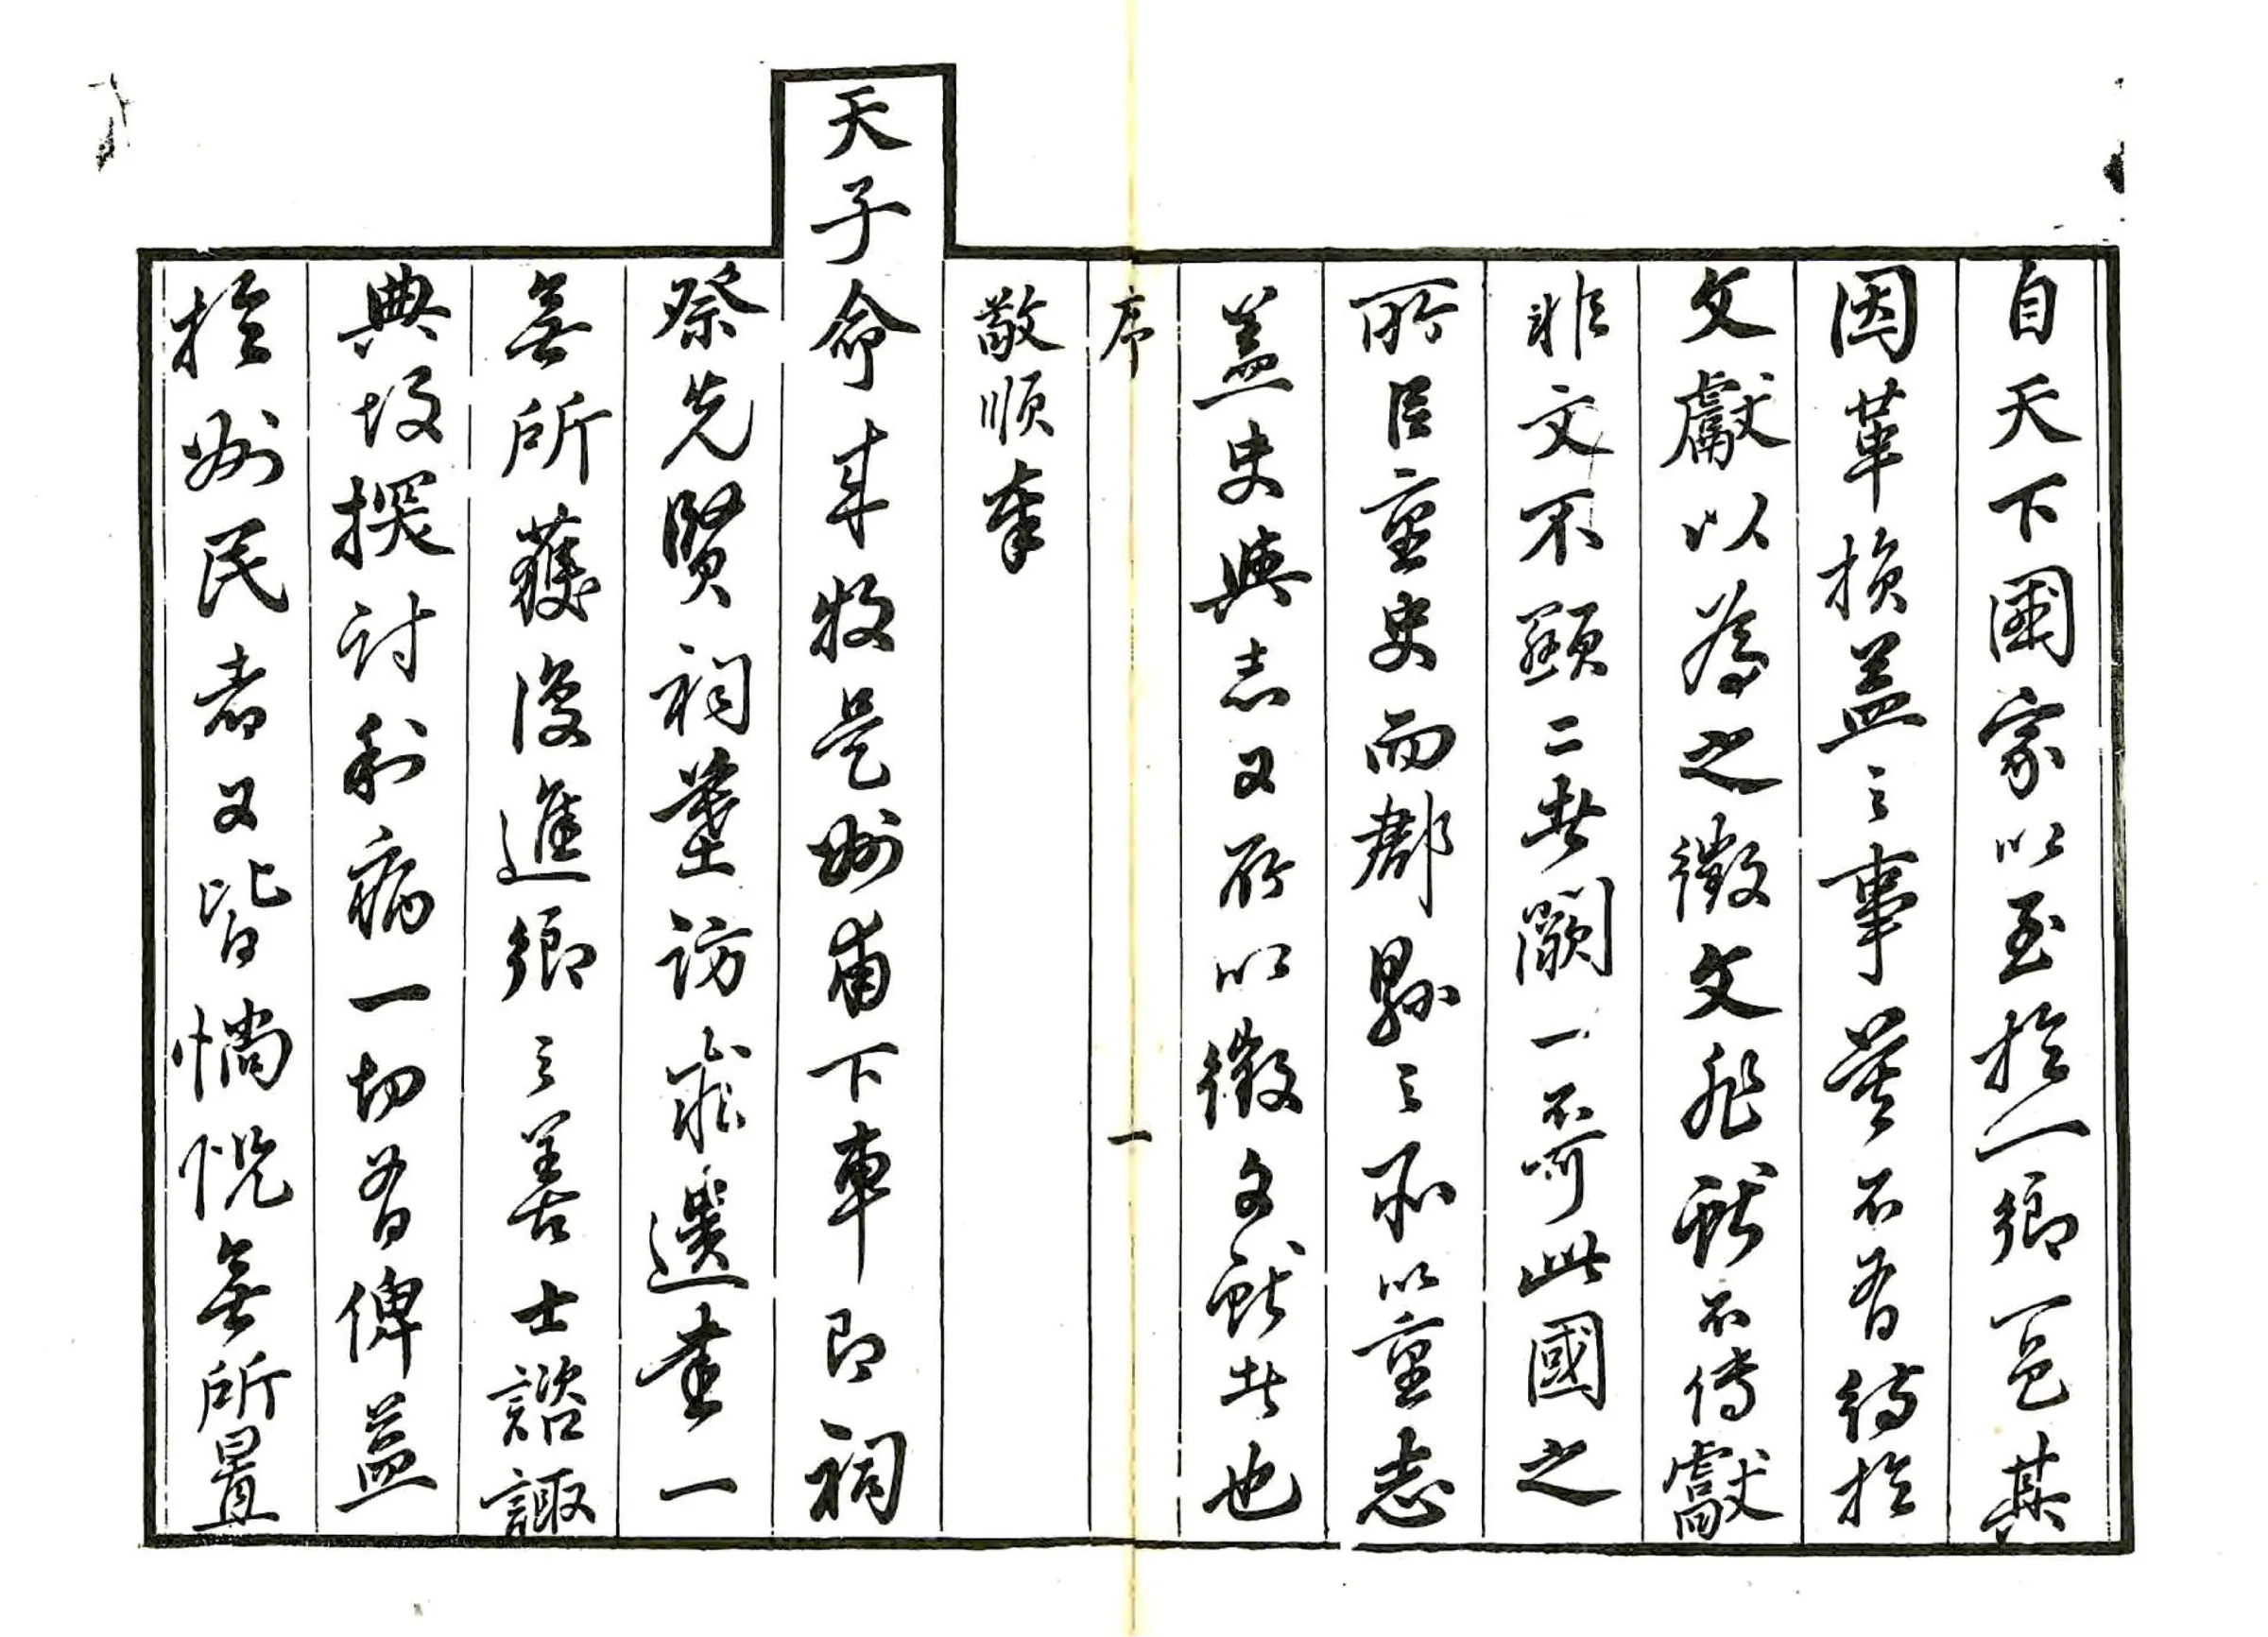 自天下國家以至於一鄉一邑其
因革損益之事莫不有待於
文獻以為之徵文非獻不傳獻
非文不顯二者闕一不可此國之
所㠯重史而郡縣之所以重志
蓋史與志又所以徵文獻者也
序 一
敬順奉
天子命來牧是州甫下車即祠
祭先賢祠墓訪求遺書一
無所獲復進鄉之善士諮諏
典故探討利病一切有俾益
於州民者又皆惝怳無所置